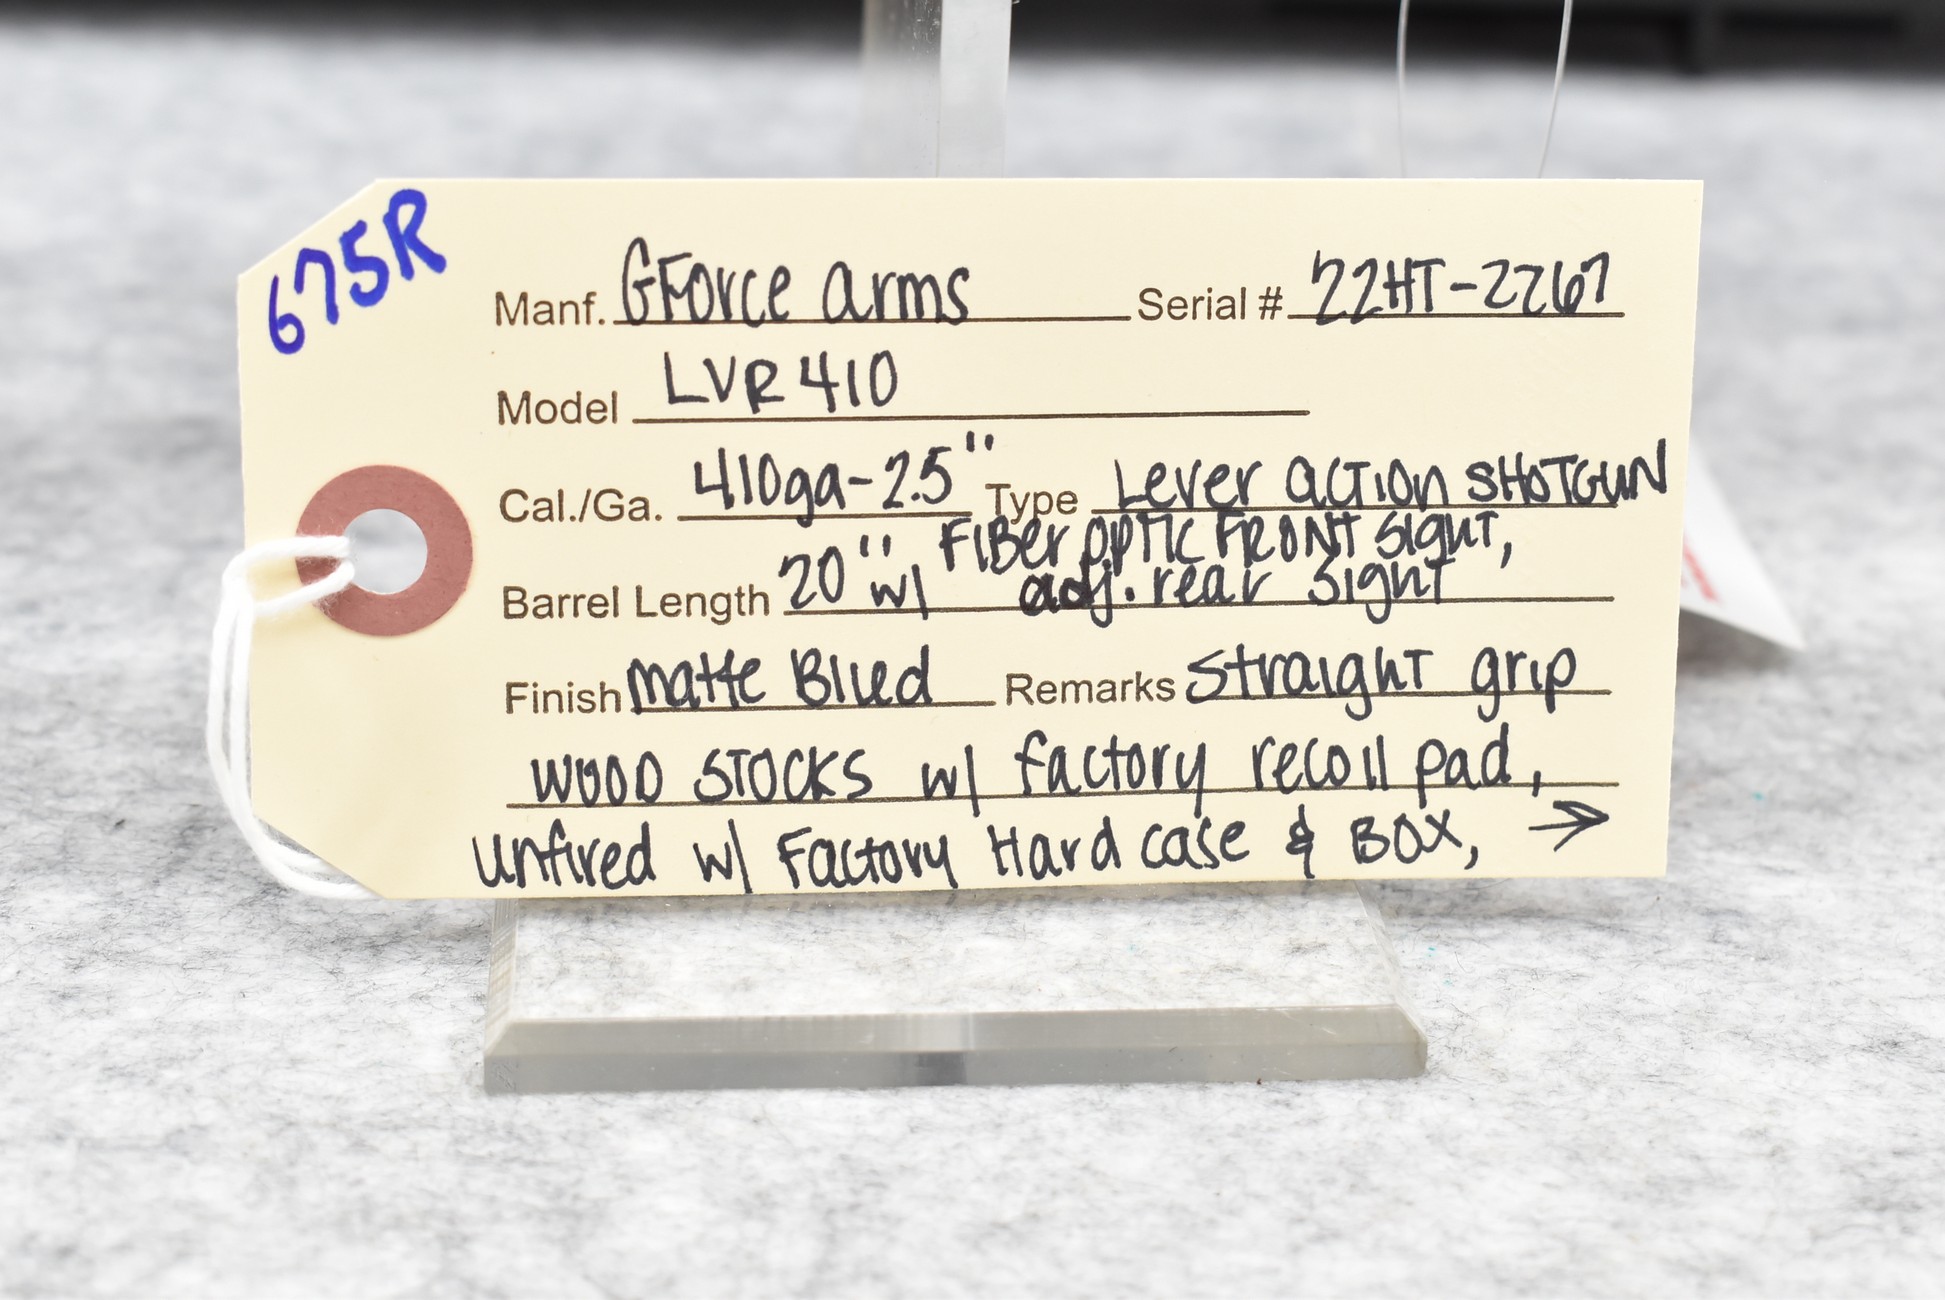 675R
Manf. GForce arms Serial # 22HT-2267
Model LVR 410
Cal./Ga. 410ga-2.5" Type Lever action SHOTGUN
Barrel Length 20" w/ Fiber optic FRONT Sight,
adj. rear Sight
Finish matte Blued Remarks Straight grip
WOOD STOCKS w/ factory recoil pad,
unfired w/ Factory Hard case & BOX, →